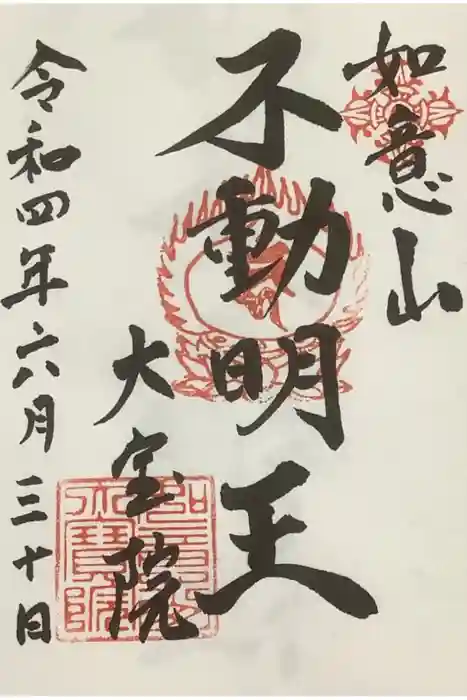 如意山
不動明王
大宝院
令和四年六月三十日